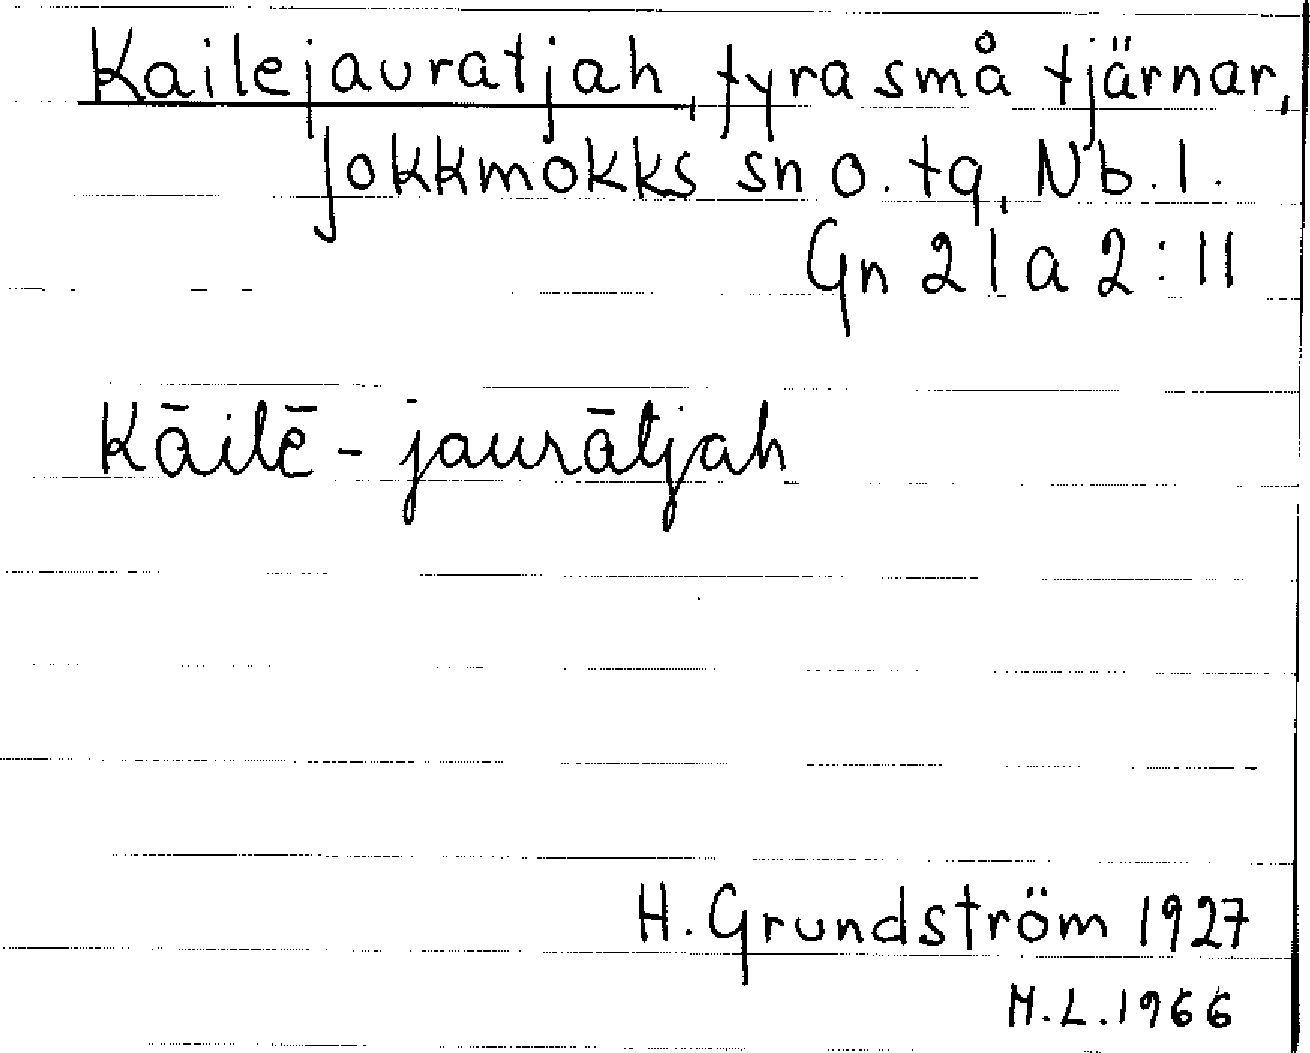 Kailejauratjah, fyra små tjärnar,
Jokkmokks sn o. tg, Nb. l.
Gn 21 a 2:11
Kāilē-jaurātjah
H. Grundström 1927
M.L. 1966